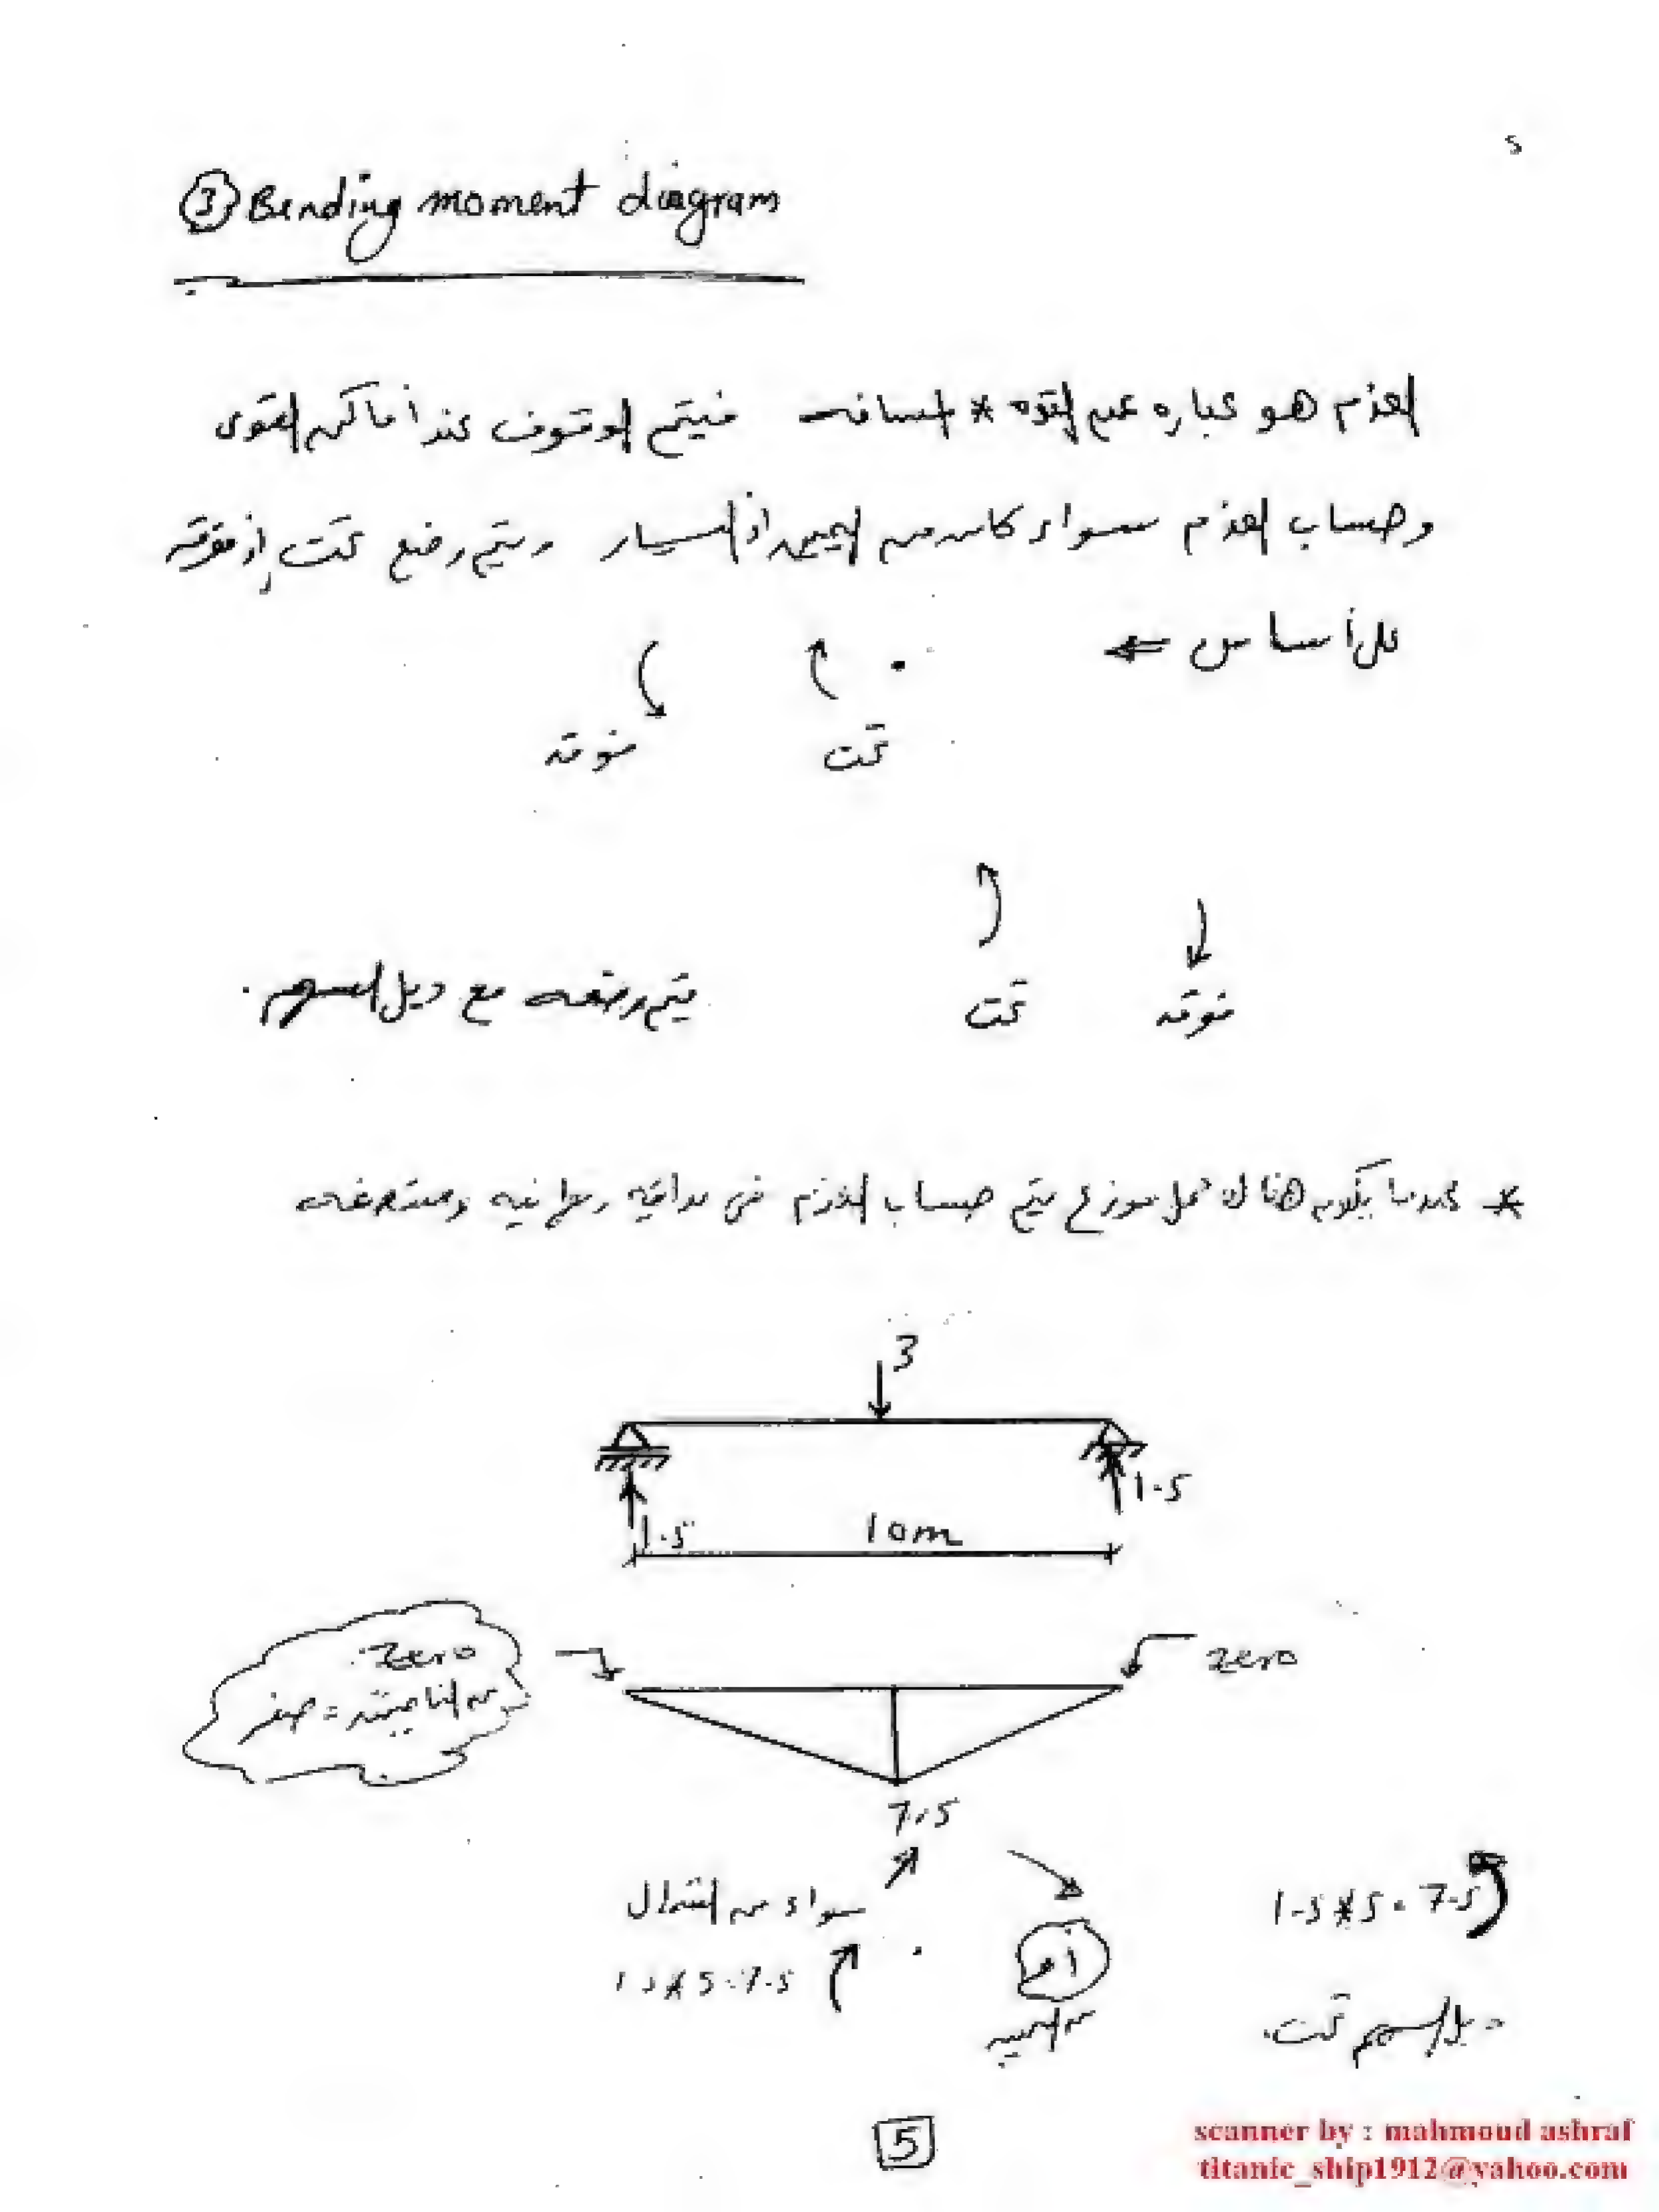 5
③ Bending moment diagram
العزم هو عباره عن القوه * المسافه فيتم الوقوف عند أماكن القوى
وحساب العزم سواء كان من اليمين أو اليسار ويتم وضع تحت أو فوقه
على أساس ⇐
تحت فوقه
فوقه تحت يتم وضعه مع ديل السهم .
* عندما يكون هناك حمل موزع يتم حساب العزم في بدايته ونهايته ومنتصفه
3
1.5
1.5
10m
zero
من الناحيتين = صفر
zero
7.5
سواء من الشمال
1.5*5=7.5
أو
من اليمين
1.5*5=7.5
ديل السهم تحت.
5
scanner by : mahmoud ashraf
titanic_ship1912@yahoo.com